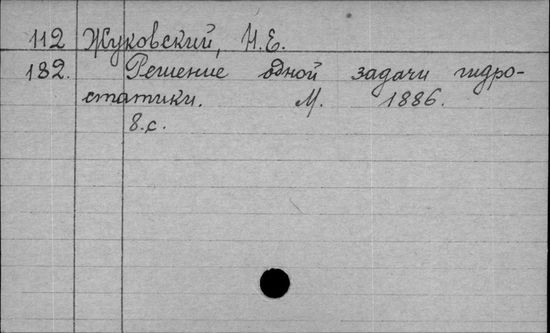 112 Жуковский, Н.Е.
182. Решение одной задачи гидро-
статики. М. 1886.
8.с.